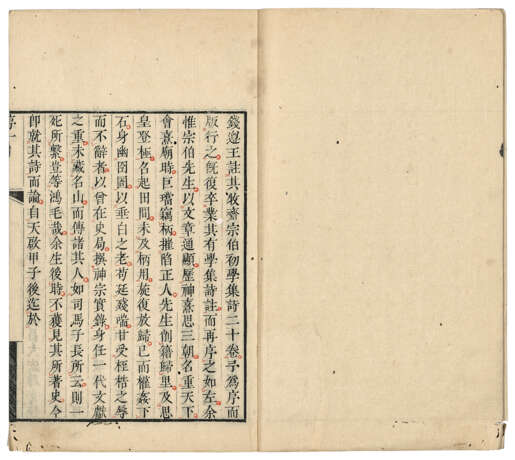 錢遵王註其牧齋宗伯初學集詩二十卷予爲序而
版行之旣復卒業其有學集詩註而再序之如左余
惟宗伯先生以文章通顯歷神熹思三朝名重天下
會熹廟時巨璫竊柄摧陷正人先生削籍歸里及思
皇登極名起田間未及柄用旋復放歸已而權姦下
石身幽囹圄以垂白之老苟延殘喘甘受桎梏之辱
而不辭者以曾在史局撰神宗實錄身任一代文獻
之重未藏名山而傳諸其人如司馬子長所云則一
死所繫豈等鴻毛哉余生後時不獲見其所著史今
卽就其詩而論自天啟甲子後迄於